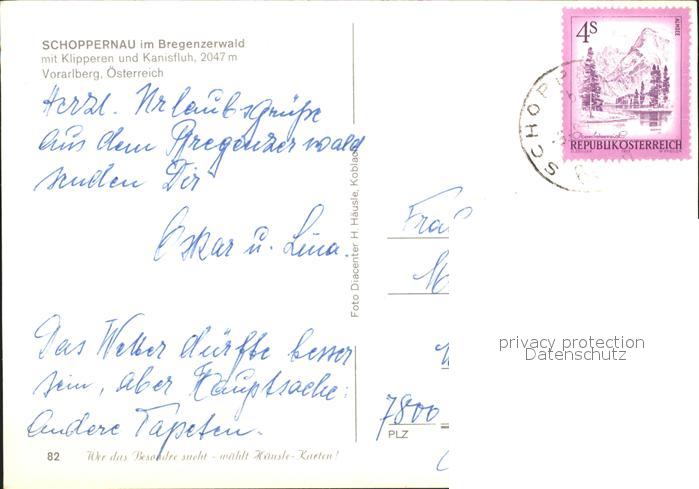 SCHOPPERNAU im Bregenzerwald
mit Klipperen und Kanisfluh, 2047 m
Vorarlberg, Österreich
Herzl. Urlaubsgrüße
aus dem Bregenzerwald
senden Dir
Oskar u. Lina.
Das Wetter dürfte besser
sein, aber Hauptsache:
Andere Tapeten.
82 Wer das Besondre sucht - wählt Häusle-Karten!
Foto Diacenter H. Häusle, Koblach
4S
ALMSEE
REPUBLIK ÖSTERREICH
SCHOPP
Frau
M
7800
PLZ
privacy protection
Datenschutz